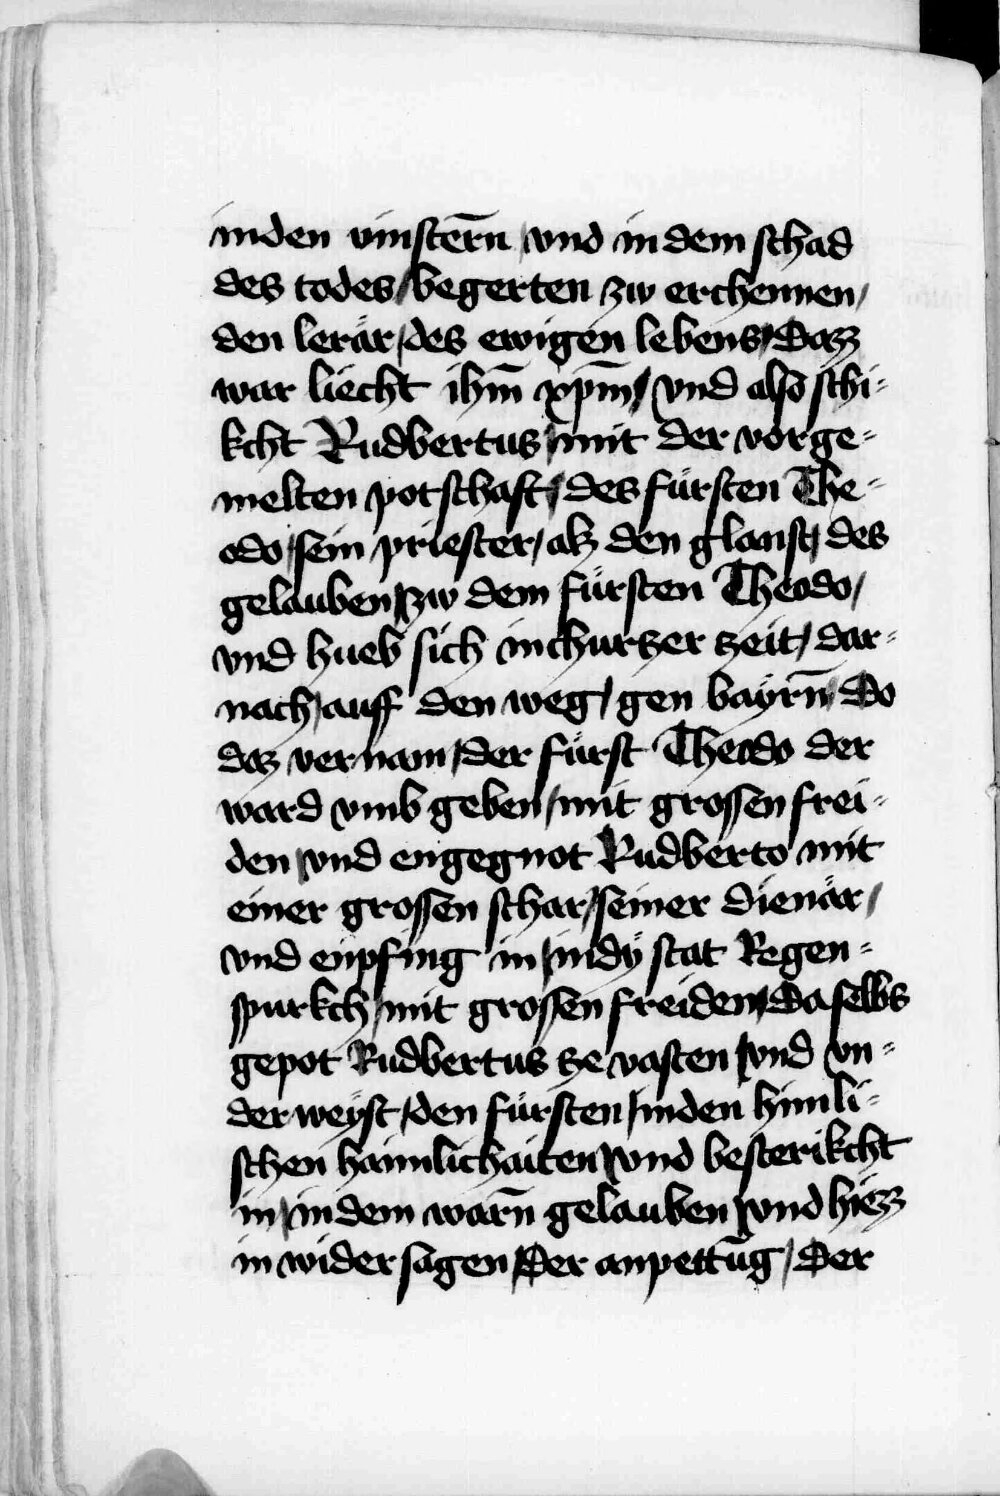 inden vinstern̄ / vnd in dem schad
des todes / begerten zw erchennen /
den lerär / des ewigen lebens / Dazz
war liecht ihm̄ xpm̄ / vnd also schi⸗
kcht Rudbertus / mit der vorge⸗
melten potschaft / des fürsten The⸗
odo / sein priester / alz den glanst / des
gelauben / zw dem fürsten Theodo /
vnd hueb sich in churtzer tzeit / dar⸗
nach / auff den weg / gen bayrn̄ / Do
daz vernam / der fürst Theodo der
ward vmb geben / mit grossen frei⸗
den / vnd engegnot Rudberto mit
einer grossen schar / seiner dienär /
vnd enpfing in / in dÿ stat Regen⸗
spurkch / mit grossen freiden / Daselbs
gepot Rudbertus tze vasten / vnd vn⸗
der weÿst / den fürsten / in den himli⸗
schen haimlichaiten / vnd besterikcht
in / in dem warn̄ gelauben / vnd hiezz
in widersagen / Der anpettūg / Der